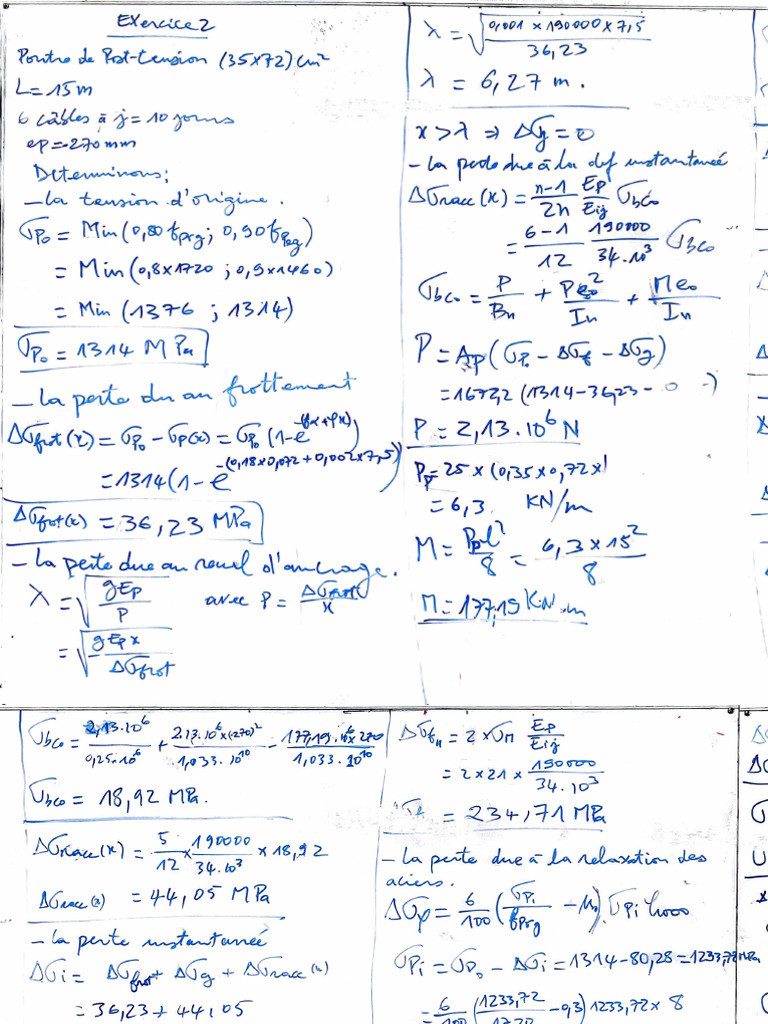 Exercice 2
Poutre de Post-tension (35x72) cm²
L = 15 m
6 cables à j = 10 jours
ep = -270 mm
Determinons:
- La tension d'origine.
σp₀ = Min(0,80 fprg ; 0,90 fpeg)
= Min(0,8x1720 ; 0,9x1460)
= Min (1376 ; 1314)
σp₀ = 1314 MPa
- La perte du au frottement
Δσfrot(x) = σp₀ - σp(x) = σp₀ (1-e^-(fα+φx))
= 1314(1-e^-(0,18x0,072+0,002x7,5))
Δσfrot(x) = 36,23 MPa
- La perte due au recul d'ancrage.
λ = √(gEp/P) avec P = Δσfrot/x
= √(gEp x/Δσfrot)
λ = √(0,001 x 190000 x 7,5/36,23)
λ = 6,27 m.
x > λ ⇒ Δσg = 0
- La perte due à la def instantaneé
Δσracc(x) = n-1/2n Ep/Eij σbco
= 6-1/12 190000/34.10³ σbco
σbco = P/Bn + Pe₀²/In + Me₀/In
P = Ap(σp₀ - Δσf - Δσg)
= 1672,2 (1314-36,23- 0 -)
P = 2,13.10⁶ N
Pp = 25 x (0,35x0,72x)
= 6,3 KN/m
M = Ppl²/8 = 6,3 x 15²/8
M = 177,19 KN.m
σbco = 2,13.10⁶/0,25.10⁶ + 2,13.10⁶x(270)²/1,033.10¹⁰ - 177,19.10⁶x270/1,033.10¹⁰
σbco = 18,92 MPa.
Δσracc(x) = 5/12 x 190000/34.10³ x 18,92
Δσracc(x) = 44,05 MPa
- La perte instantaneé
Δσi = Δσfrot + Δσg + Δσracc(x)
= 36,23 + 44,05
= 2 x σM Ep/Eij
= 2 x 21 x 190000/34.10³
= 234,71 MPa
- La perte due à la relaxation des
aciers.
Δσρ = 6/100 (σpi/fprg - μ₀) σpi ρ1000
σpi = σp₀ - Δσi = 1314-80,28 = 1233,72 MPa
= 6/100 (1233,72/1720 - 0,3) 1233,72 x 8